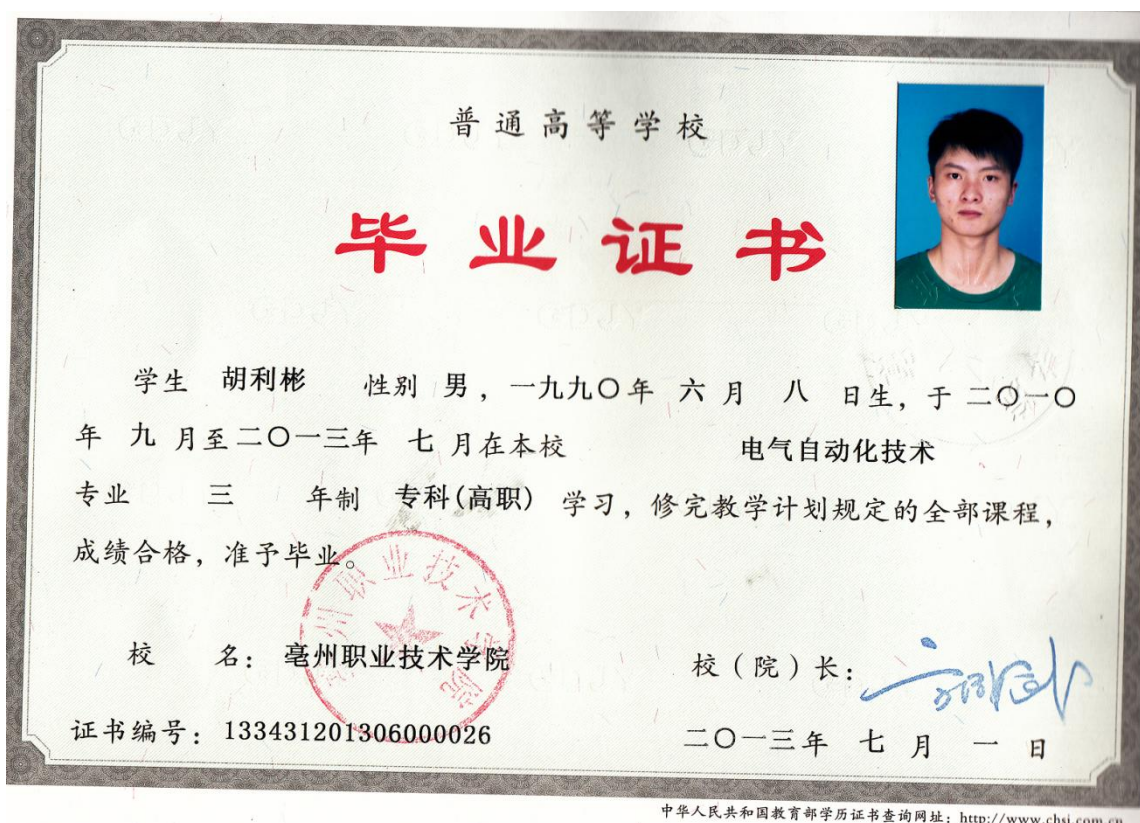 普通高等学校
毕业证书
学生 胡利彬 性别 男，一九九〇年 六 月 八 日生，于 二〇一〇
年 九 月至 二〇一三年 七 月在本校 电气自动化技术
专业 三 年制 专科(高职) 学习，修完教学计划规定的全部课程，
成绩合格，准予毕业。
亳州职业技术学院
校 名：亳州职业技术学院
校（院）长：
证书编号：133431201306000026
二〇一三年 七 月 一 日
中华人民共和国教育部学历证书查询网址：http://www.chsi.com.cn